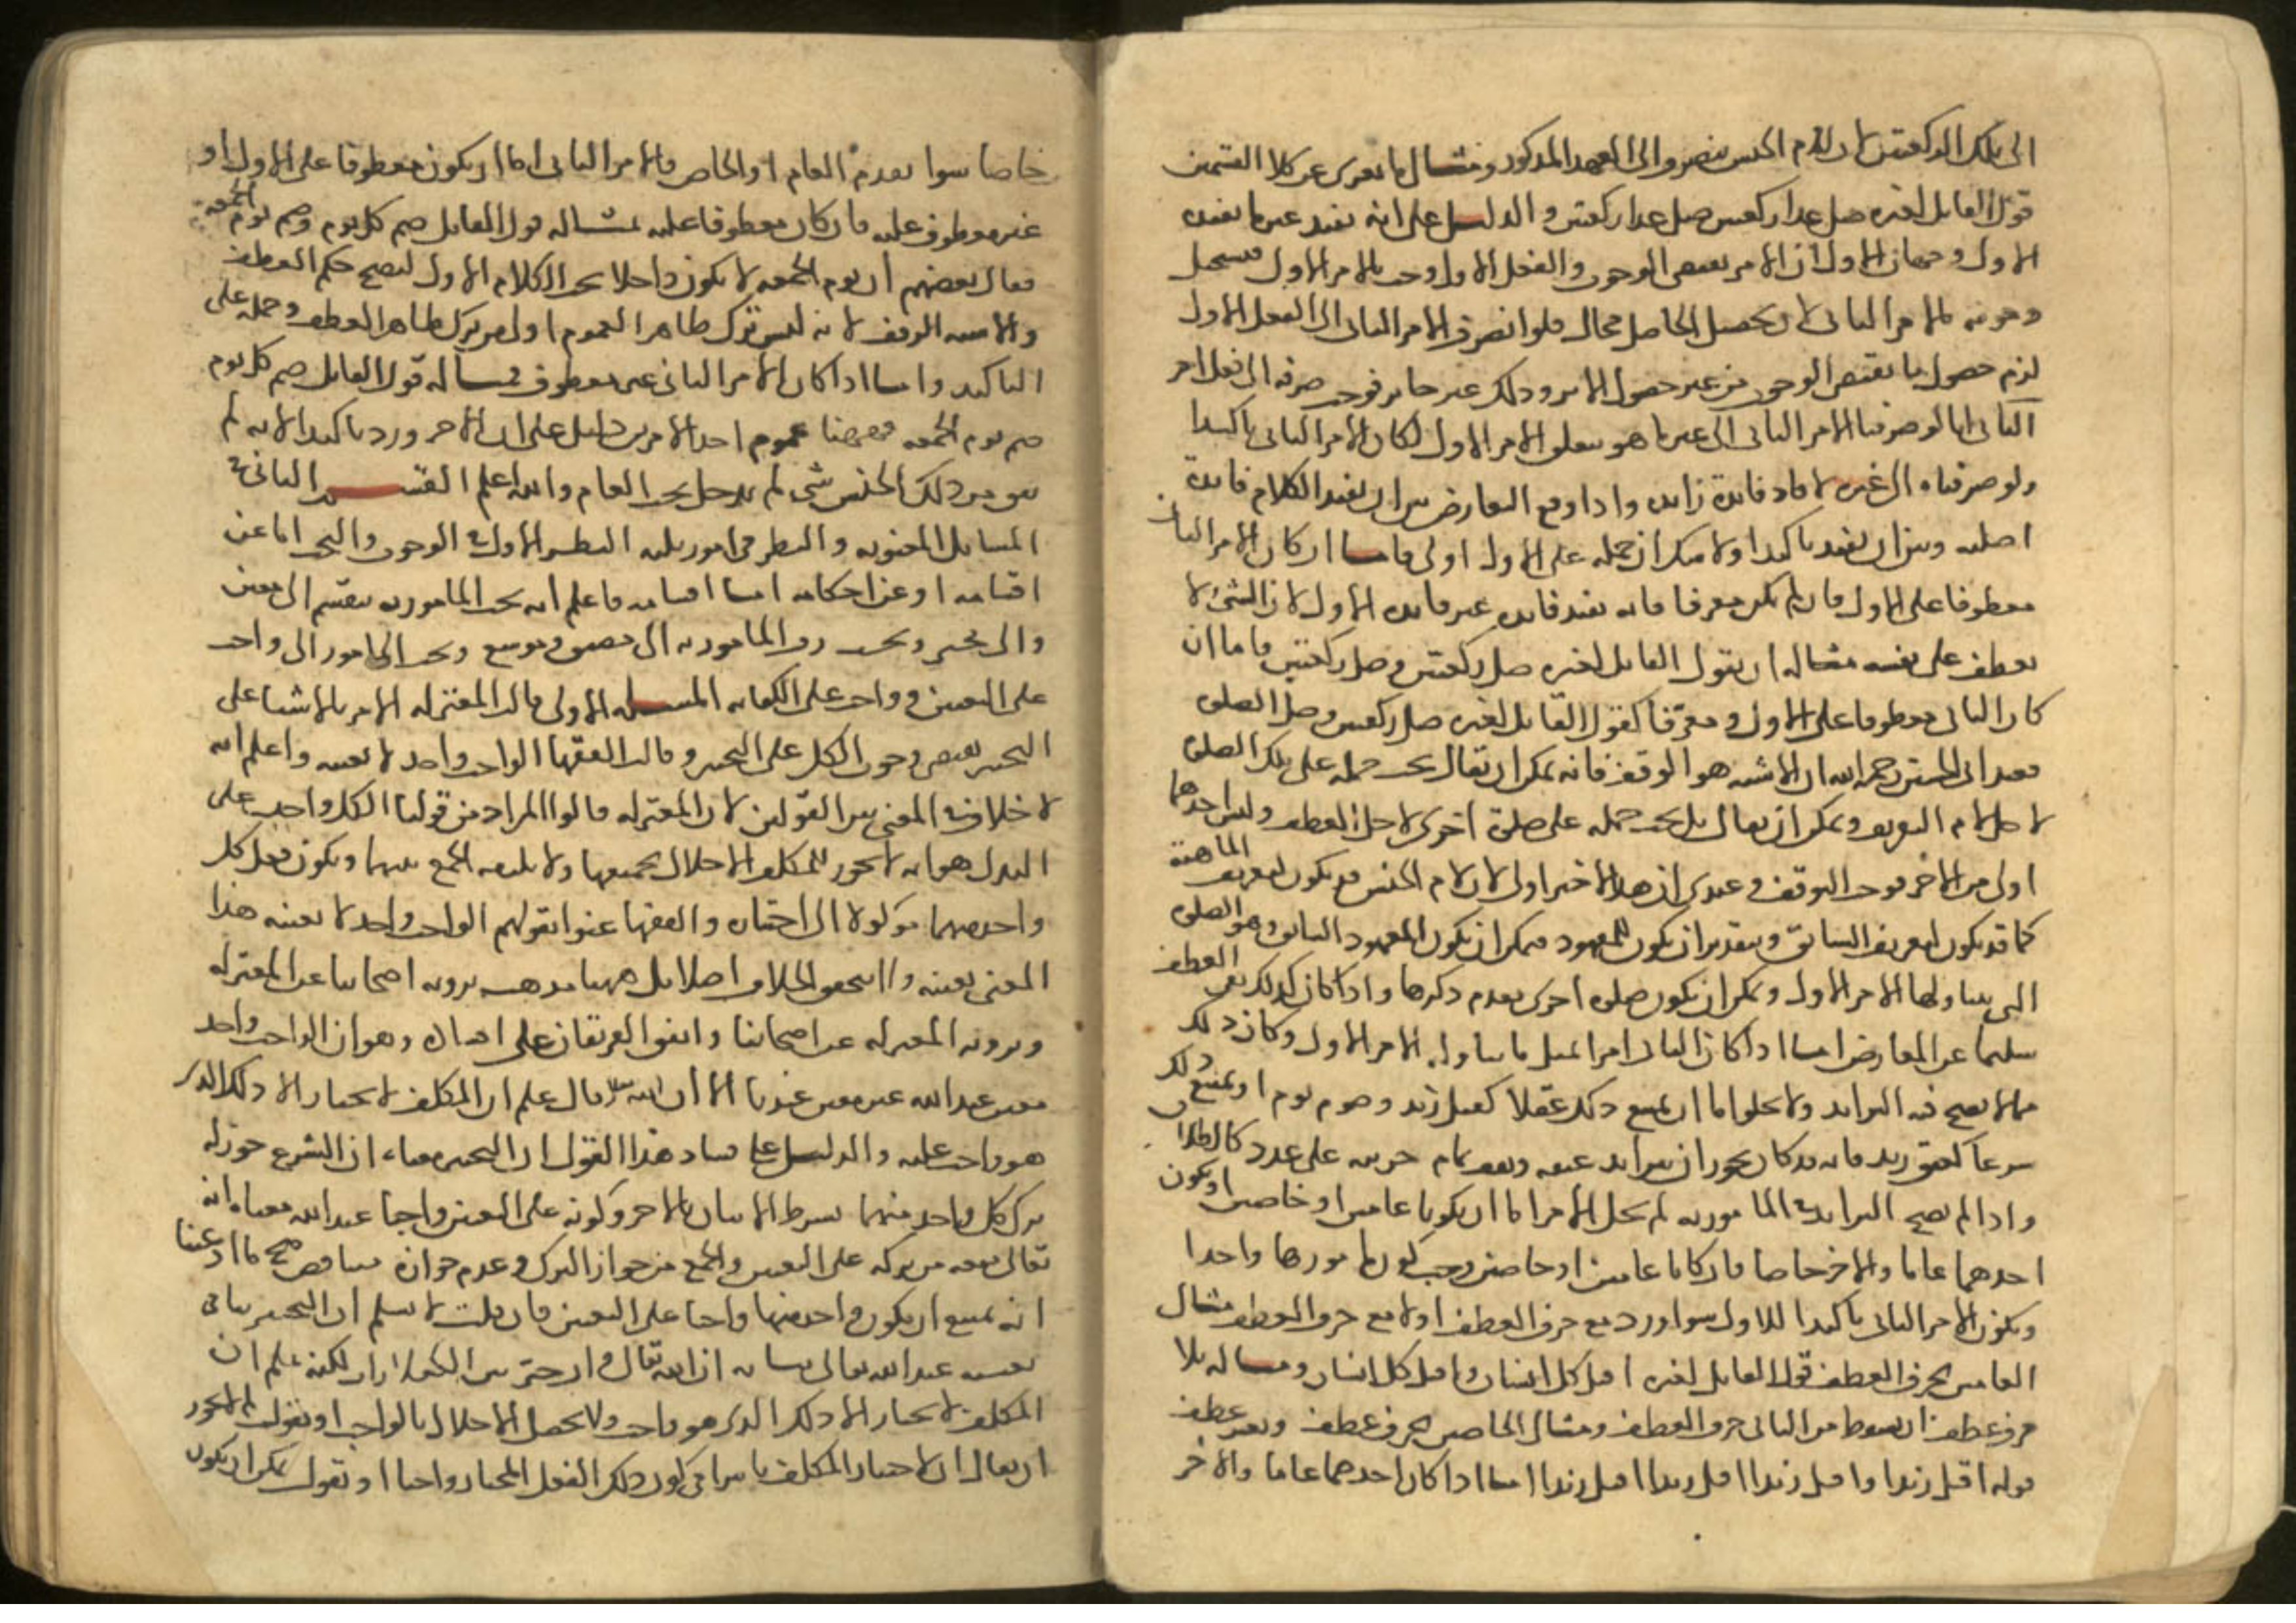 الى تلك الركعتين لان لام الجنس ينصرف الى العهد المذكور ومثال ما تعرى عن كلا القسمين
قول القائل لغيره صل غدا ركعتين صل غدا ركعتين والدليل على انه يفيد غير ما يفيده
الاول وجهان الاول ان الامر يقتضى الوجوب والفعل الاول وجب بالامر الاول فيستحيل
وجوبه بالامر الثانى لان تحصيل الحاصل محال فلو انصرف الامر الثانى الى الفعل الاول
لزم حصول ما يقتضى الوجوب من غير حصول الاثر وذلك غير جائز فوجب صرفه الى فعل اخر
الثانى انا لو صرفنا الامر الثانى الى عين ما هو متعلق الامر الاول لكان الامر الثانى تاكيدا
ولو صرفناه الى غيره لافاد فائدة زائدة واذا وقع التعارض بين ان يفيد الكلام فائدة
اصلية وبين ان يفيد تاكيدا ولا شك ان حمله على الاول اولى فاما ان كان الامر الثانى
معطوفا على الاول فان لم يكن معرفا فانه يفيد فائدة غير فائدة الاول لان الشئ لا
يعطف على نفسه مثاله ان يقول القائل لغيره صل ركعتين وصل ركعتين فاما ان
كان الثانى معطوفا على الاول ومعرفا كقول القائل لغيره صل ركعتين وصل الصلوة
فعند ابى الحسين رحمه الله ان الاشبه هو الوقف فانه يمكن ان يقال يجب حمله على تلك الصلوة
لاجل لام التعريف ويمكن ان يقال بل يجب حمله على صلوة اخرى لاجل العطف وليس احدهما
اولى من الاخر فوجب التوقف وعندى ان هذا الاخير اولى لان لام الجنس قد يكون لتعريف الماهية
كما قد يكون لتعريف السابق وبتقدير ان يكون للمعهود فيمكن ان يكون المعهود السابق وهو الصلوة
التى يتناولها الامر الاول ويمكن ان يكون صلوة اخرى تقدم ذكرها واذا كان كذلك بقى العطف
سليما عن المعارض اما اذا كان الثانى امرا بمثل ما يتناوله الامر الاول وكان ذلك
مما لا يصح فيه التزايد ولا يخلو اما ان يمتنع ذلك عقلا كقتل زيد وصوم يوم او يمتنع ذلك
شرعا كعتق زيد فانه قد كان يجوز ان يتزايد عتقه ويقف تمام حريته على عدد كالطلاق
واذا لم يصح التزايد فى المامور به لم يخل الامران اما ان يكونا عامين او خاصين او يكون
احدهما عاما والاخر خاصا فان كانا عامين او خاصين وجب كون مامورهما واحدا
ويكون الامر الثانى تاكيدا للاول سوا ورد مع حرف العطف او لا مع حرف العطف مثال
العامين بحرف العطف قول القائل لغيره اقتل كل انسان واقتل كل انسان ومثاله بلا
حرف عطف ان يسقط من الثانى حرف العطف ومثال الخاصين بحرف عطف وبغير عطف
قوله اقتل زيدا واقتل زيدا اقتل زيدا اقتل زيدا اما اذا كان احدهما عاما والاخر
خاصا سوا تقدم العام او الخاص فالامر الثانى اما ان يكون معطوفا على الاول او
غير معطوف عليه فان كان معطوفا عليه مثاله قول القائل صم كل يوم وصم يوم الجمعة
فقال بعضهم ان يوم الجمعة لا يكون داخلا تحت الكلام الاول ليصح حكم العطف
والاشبه الوقف لانه ليس ترك ظاهر العموم اولى من ترك ظاهر العطف وحمله على
التاكيد واما اذا كان الامر الثانى غير معطوف فمثاله قول القائل صم كل يوم
صم يوم الجمعة فههنا عموم احد الامرين دليل على ان الاخر ورد تاكيدا لانه لم
يبق من ذلك الجنس شئ لم يدخل تحت العام والله اعلم القسم الثانى فى
المسائل المعنوية والنظر فى امور ثلثه النظر الاول فى الوجوب والبحث اما عن
اقسامه او عن احكامه اما اقسامه فاعلم انه بحسب المامور به ينقسم الى معين
والى مخير وبحسب وقت المامور به الى مضيق وموسع وبحسب المامور الى واجب
على التعيين وواجب على الكفاية المسئلة الاولى قالت المعتزلة الامر بالاشيا على
التخيير يقتضى وجوب الكل على التخيير وقالت الفقها الواجب واحد لا بعينه واعلم انه
لا خلاف فى المعنى بين القولين لان المعتزلة قالوا المراد من قولنا الكل واجب على
البدل هو انه لا يجوز للمكلف الاخلال بجميعها ولا يلزمه الجمع بينهما ويكون فعل كل
واحد منهما موكولا الى اختياره والفقها عنوا بقولهم الواجب واحد لا بعينه هذا
المعنى بعينه ولا يتحقق الخلاف اصلا بل ههنا مذهب يرويه اصحابنا عن المعتزلة
ويرويه المعتزلة عن اصحابنا واتفق الفريقان على افساده وهو ان الواجب واحد
معين عند الله غير معين عندنا الا ان الله تعالى علم ان المكلف لا يختار الا ذلك الذى
هو واجب عليه والدليل على فساد هذا القول ان التخيير معناه ان الشرع جوز له
ترك كل واحد منهما بشرط الاتيان بالاخر وكونه على التعيين واجبا عند الله معناه انه
تعالى منعه من تركه على التعيين والجمع من جواز الترك وعدم جوازه متناقض صح ما ادعينا
انه يمتنع ان يكون واحد منها واجبا على التعيين فان قلت لا نسلم ان التخيير ينافى
تعيينه عند الله تعالى بيانه ان الله تعالى وان خير بين الكفارات لكنه علم ان
المكلف لا يختار الا ذلك الذى هو واجب ولا يحصل الاخلال بالواجب او نقول لم لا يجوز
ان يقال ان لاختيار المكلف تاثيرا فى كون ذلك الفعل المختار واجبا او نقول يمكن ان يكون